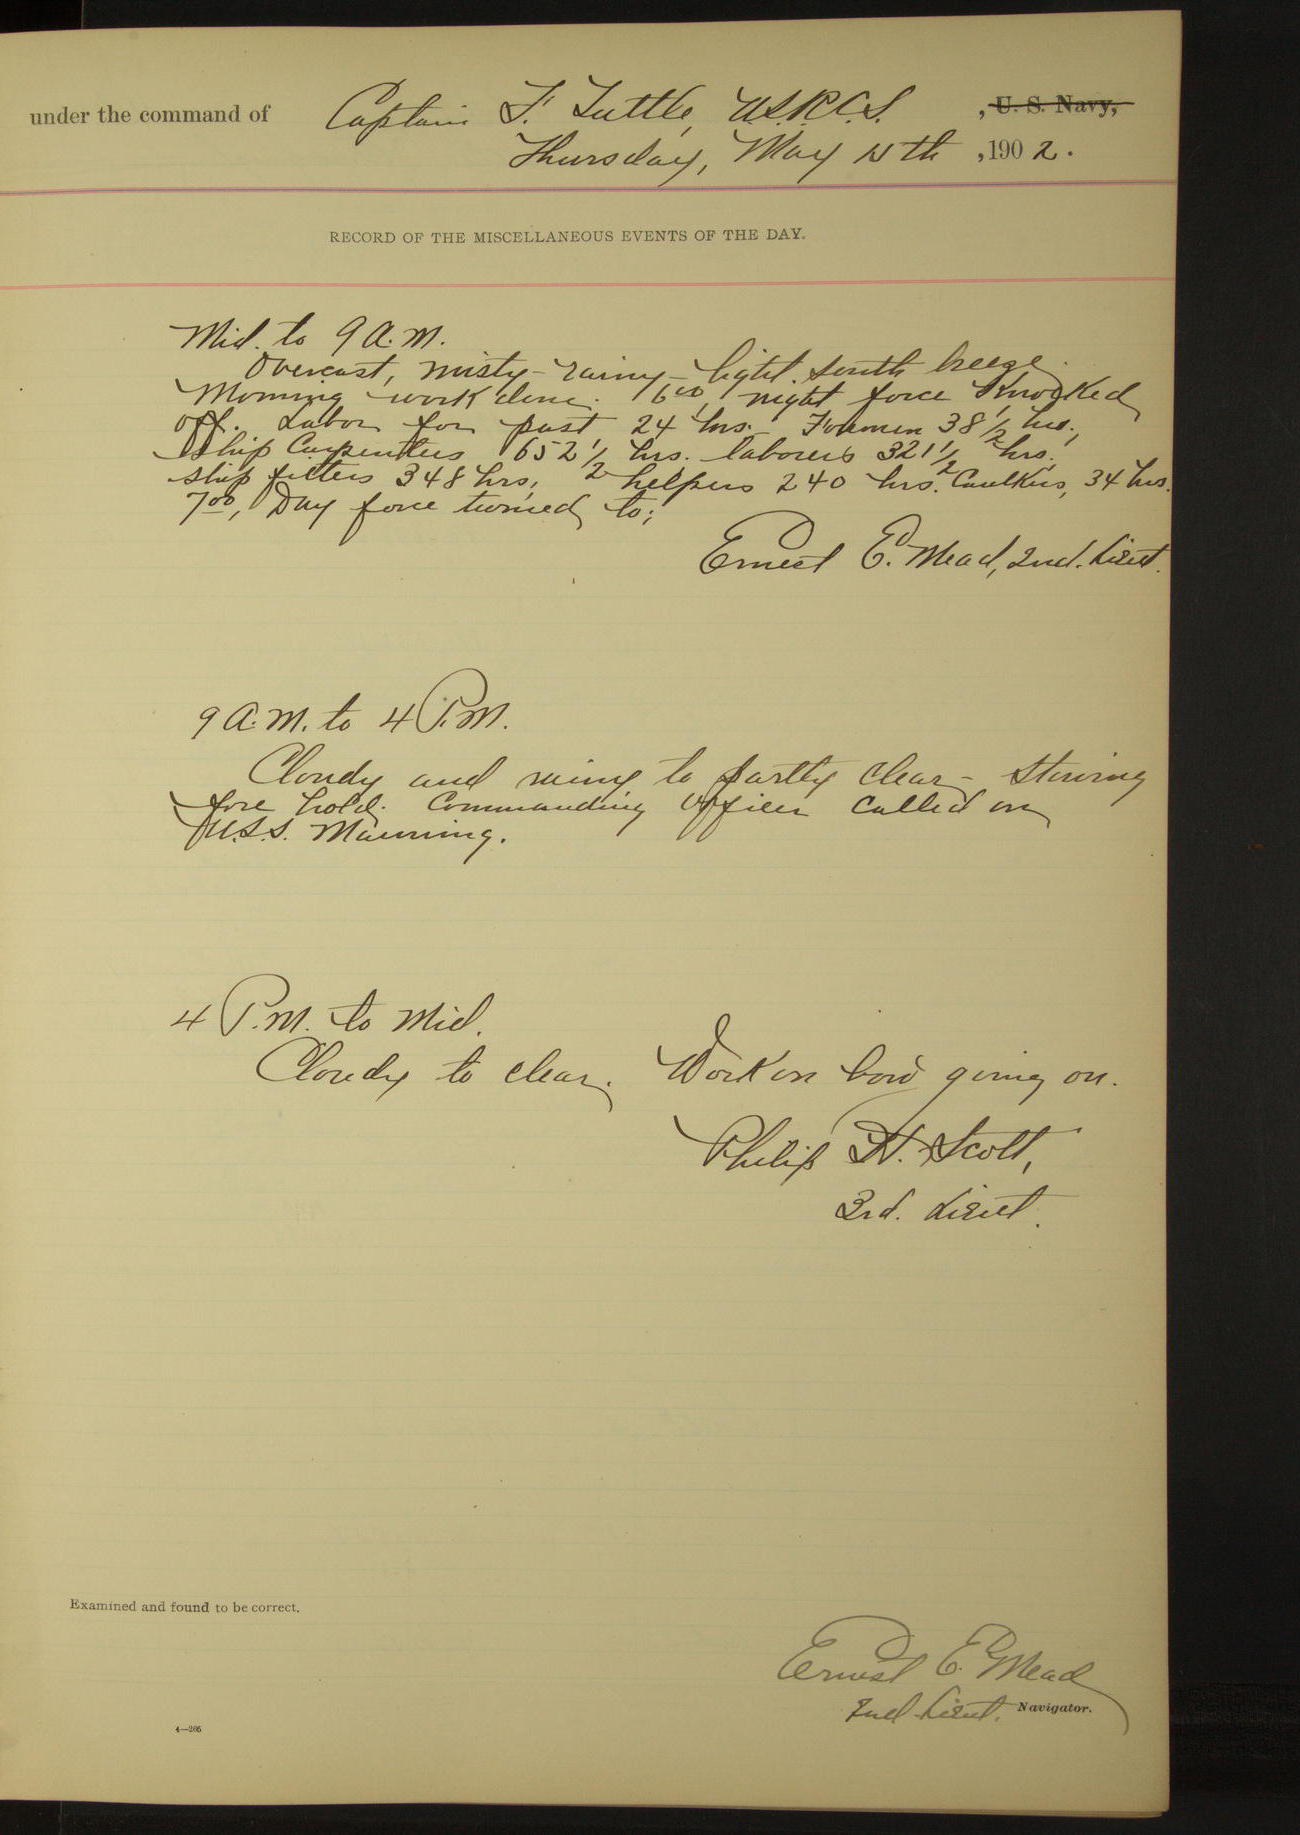 under the command of Captain F. Tuttle, U.S.R.C.S. , U. S. Navy,
Thursday, May 15th , 1902.
RECORD OF THE MISCELLANEOUS EVENTS OF THE DAY.
Mid. to 9 A.M.
Overcast, misty - rainy - light south breeze.
Morning work done. 6 00, night force Knocked
off. Labor for past 24 hrs. Foremen 38 1/2 hrs.,
Ship Carpenters 652 1/2 hrs. laborers 321 1/2 hrs,
ship fitters 348 hrs, helpers 240 hrs. Caulkers, 34 hrs.
7 00, Day force turned to;
Ernest E. Mead, 2nd. Lieut.
9 A.M. to 4 P.M.
Cloudy and to partly clear - Stowing
fore hold. Commanding Officer called on
U.S.S. Manning.
4 P.M. to Mid.
Cloudy to clear. Work on bow going on.
Philip H. Scott,
3rd. Lieut.
Examined and found to be correct.
Ernest E. Mead
2nd Lieut. Navigator.
4—266